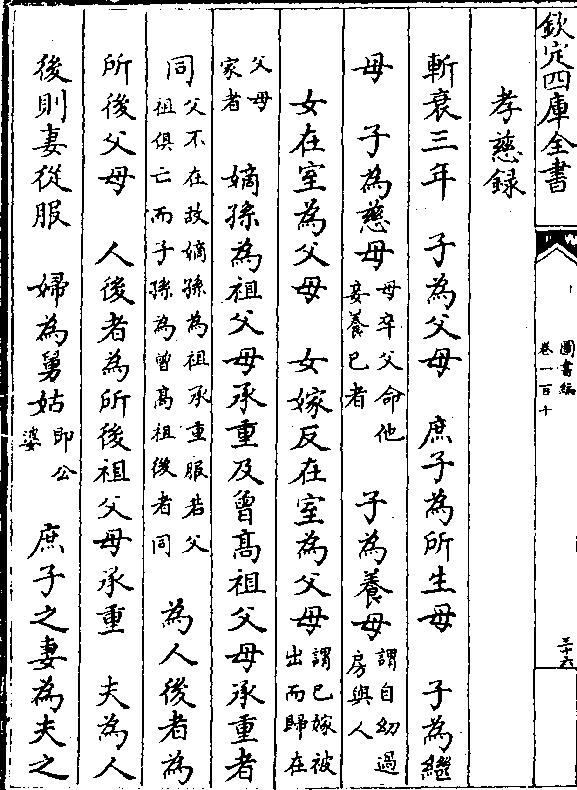 欽定四庫全書
圖書編
卷一百十
三十六
孝慈録
斬衰三年　子為父母　庶子為所生母　子為繼
母　子為慈母母卒父命他妾養已者　子為養母謂自幼過房與人
女在室為父母　女嫁反在室為父母謂已嫁被出而歸在
父母家者　嫡孫為祖父母承重及曾髙祖父母承重者
同父不在故嫡孫為祖承重服若父祖俱亡而子孫為曾髙祖後者同　為人後者為
所後父母　人後者為所後祖父母承重　夫為人
後則妻從服　婦為舅姑即公婆　庶子之妻為夫之